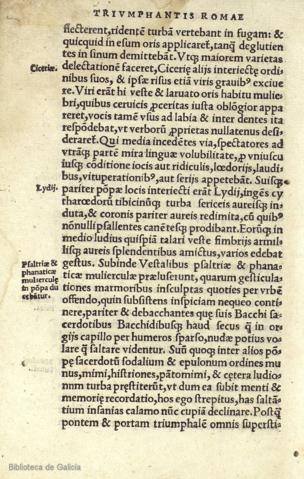 TRIVMPHANTIS ROMAE
flecterent, ridentē turba vertebant in fugam: &
quicquid in esum oris applicaref, tanq̃ deglutien
tes in sinum demittebāt. Vtq; maiorem varietas
Ciceriæ. delectationē faceret, Ciceriē alijs interiectę ordi=
nibus suos, & ipsæ risus etiā viros grauibꝰ exciue
re. Viri erāt hi veste & laruato oris habitu mulie
bri, quibus ceruicis ꝓceritas iusta oblōgior appa
reret, vocis tamē vsus ad labia & inter dentes ita
respōdebat, vt verborū ꝓprietas nullatenus desi=
deraref. Qui media incedētes via, spectatores ad
vtrāq; partē mira linguæ volubilitate, ꝓ vniuscu
iusq; cōditione iocis aut ridiculis, lœdorijs, laudi=
bus, vituperationibꝰ, aut serijs appetebāt. Suisq;
Lydij. pariter pōpæ locis interiecti erāt Lydij, ingēs cy
tharœdorū tibicinūq; turba sericeis aureisq; in=
duta, & coronis pariter aureis redimita, cū quibꝰ
nōnulli psallentes canētesq; prodibant. Eorūq; in
medio ludius quispiā talari veste fimbrijs armil=
lisq; aureis splendentibus amictus, varios edebat
Psaltriæ & phanaticæ mulierculę in pōpa du cebātur. gestus. Subinde Vestalibus psaltriæ & phana=
ticæ mulierculæ præluserunt, quarum gesticula=
tiones marmoribus insculptas quoties per vrbē
offendo, quin subsistens inspiciam nequeo conti
nere, pariter & debacchantes quę suis Bacchi sa=
cerdotibus Bacchidibusq; haud secus q̃ in or=
gijs capillo per humeros sparso, nudæ potius vo=
lare q̃ saltare videntur. Sun̄ quoq; inter alios pō=
pę sacerdotū sodalium & epulonum ordines mu
nus, mimi, histriones, pātomimi, & cętera ludio=
num turba pręstiterūt, vt dum ea subit menti &
memorię recordatio, hos ego strepitus, has saltā=
tium insanias calamo nūc cupiā declinare. Postq̃
pontem & portam triumphalē omnis supersti=
Biblioteca de Galicia